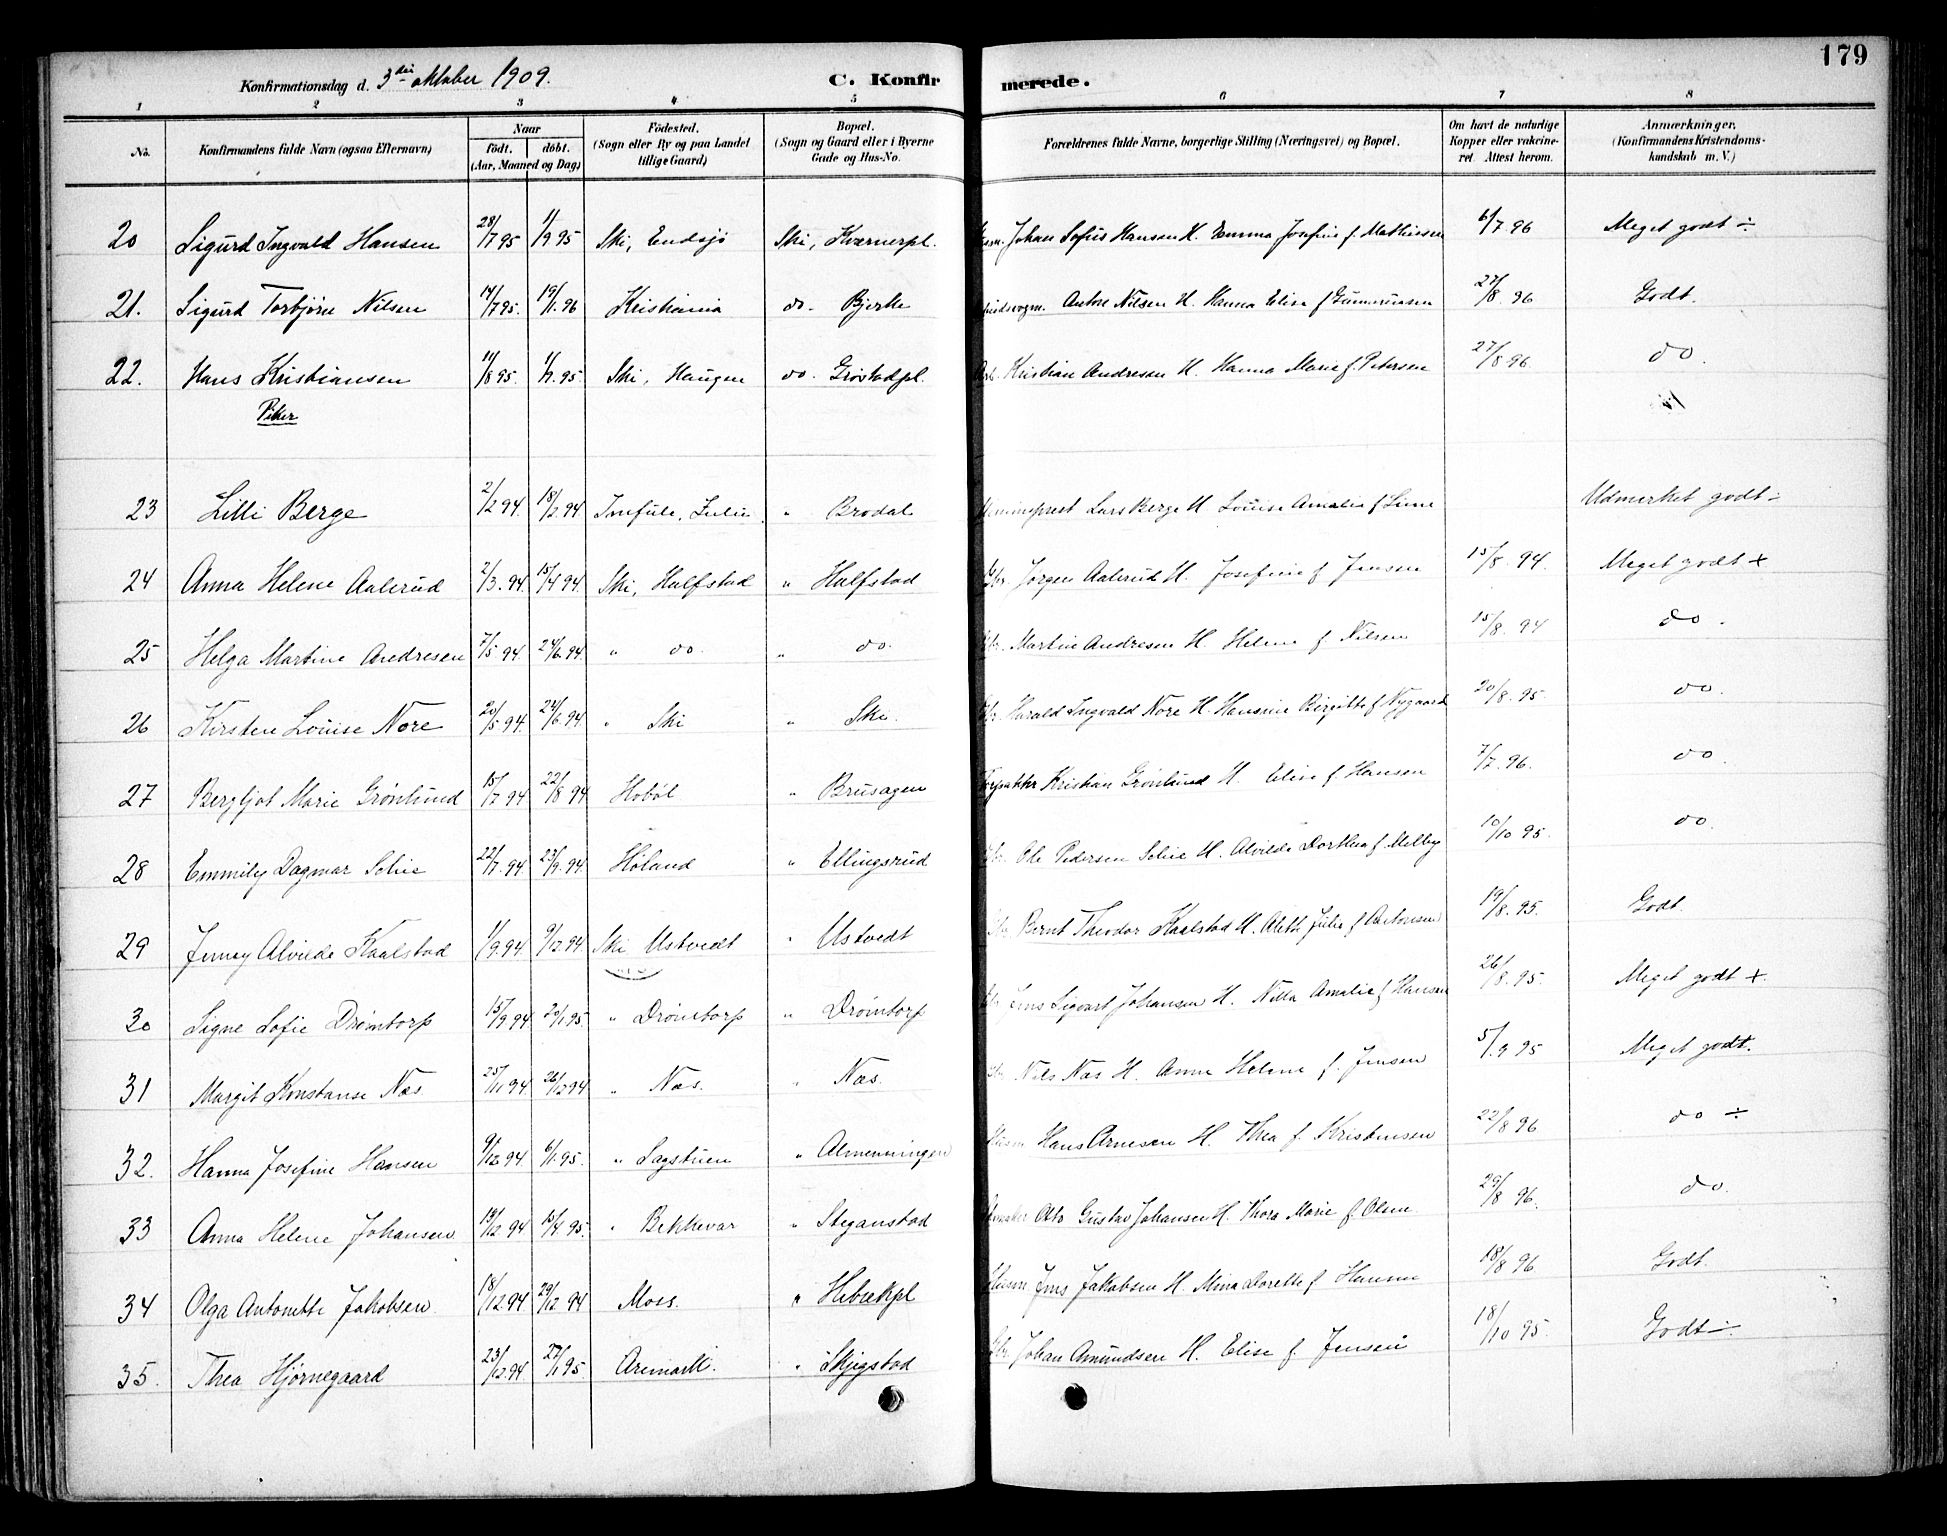 179
Konfirmationsdag d. 3die oktober 1909. C. Konfirmerede.
1 2 3 4 5 6 7 8
No. Konfirmandens fulde Navn (ogsaa Efternavn) Naar födt. döbt. (Aar, Maaned og Dag) Födested. (Sogn eller By og paa Landet tillige Gaard) Bopæl. (Sogn og Gaard eller i Byerne Gade og Hus-No. Forældrenes fulde Navne, borgerlige Stilling (Næringsvei) og Bopæl. Om havt de naturlige Kopper eller vakcineret. Attest herom. Anmærkninger. (Konfirmandens Kristendomskundskab m. V.)
20 Sigurd Ingvald Hansen 28/7 95 1/9 95 Ski, Endsjø Ski, Kværnerpl. Johan Sofus Hansen H. Emma Josefine f. Mathissen 6/7 96 Meget godt ÷
21. Sigurd Torbjørn Nilsen 14/7 95. 19/1. 96 Kristiania do. Bjerke Anton Nilsen H. Hanna Elise f. Gunnerusen 27/8. 96 Godt.
22. Hans Kristiansen 11/8 95. 1/9. 95 Ski, Haugen do. Grøstadpl. Kristian Andresen H. Hanna Marie f. Petersen 27/8 96. do.
Piker
23 Lilli Berge 2/2 94. 18/2. 94 " Brodal Lars Berge H. Louise Amalie f. Udmerket godt ÷
24 Anna Helene Aalerud 2/3. 94. 15/4 94. Ski, Halfstad " Halfstad Jørgen Aalerud H. Josefine f. Jensen 15/8. 94. Meget godt +
25 Helga Martine Andresen 7/5 94. 24/6. 94. " do. " do. Martin Andresen H. Helene f. Nilsen 15/8. 94 do.
26 Kirsten Louise Nore 20/5 94. 24/6. 94 " Ski " Ski. Harald Ingvald Nore H. Hansine Birgitte f. Nygaard 20/8. 95. do.
27 Bergljot Marie Grønlund 15/7 94 22/8 94 Hobøl " Brusagen Kristian Grønlund H. Elise f. Hansen 7/7. 96. do
28 Emmily Dagmar Solie 22/7. 94 23/9. 94 Høland " Ellingsrud Ole Pedersen Solie H. Alvilde Dorthea f. Melby 10/10 95. do.
29 Jenney Alvilde Kaalstad 1/9. 94. 9/12 94. Ski Ustvedt " Ustvedt Bernt Theodor Kaalstad H. Aleth Julie f. Antonsen 19/8. 95. Godt.
30 Signe Sofie Drømtorp 15/9 94 20/1. 95 " Drømtorp " Drømtorp Jens Sigvart Johansen H. Nilla Amalie f. Hansen 26/8. 95. Meget godt +
31 Margit Konstanse Næs 25/11 94 26/12 94 " Næs. " Næs. Nils Næs H. Anne Helene f. Jensen 5/9 95 Meget godt.
32. Hanna Josefine Hansen 9/12 94 6/1. 95. " Sagstuen " Almenningen Hans Arnesen H. Thea f. Kristensen 22/8 96 do ÷
33 Anna Helene Johansen 19/12 94 15/4. 95. " Bekkevar " Steganstad Otto Gustav Johansen H. Thora Marie f. Olsen 29/8 96. do.
34 Olga Antonette Jakobsen 18/12. 94 29/12 94 Moss. " Hebækpl Jens Jakobsen H. Mina Dorette f. Hansen 18/8 96 Godt.
35. Thea Hjørnegaard 23/12. 94 27/1 95. Aremark. " Skjegstad Johan Amundsen H. Elise f. Jensen 18/10 95. Godt ÷